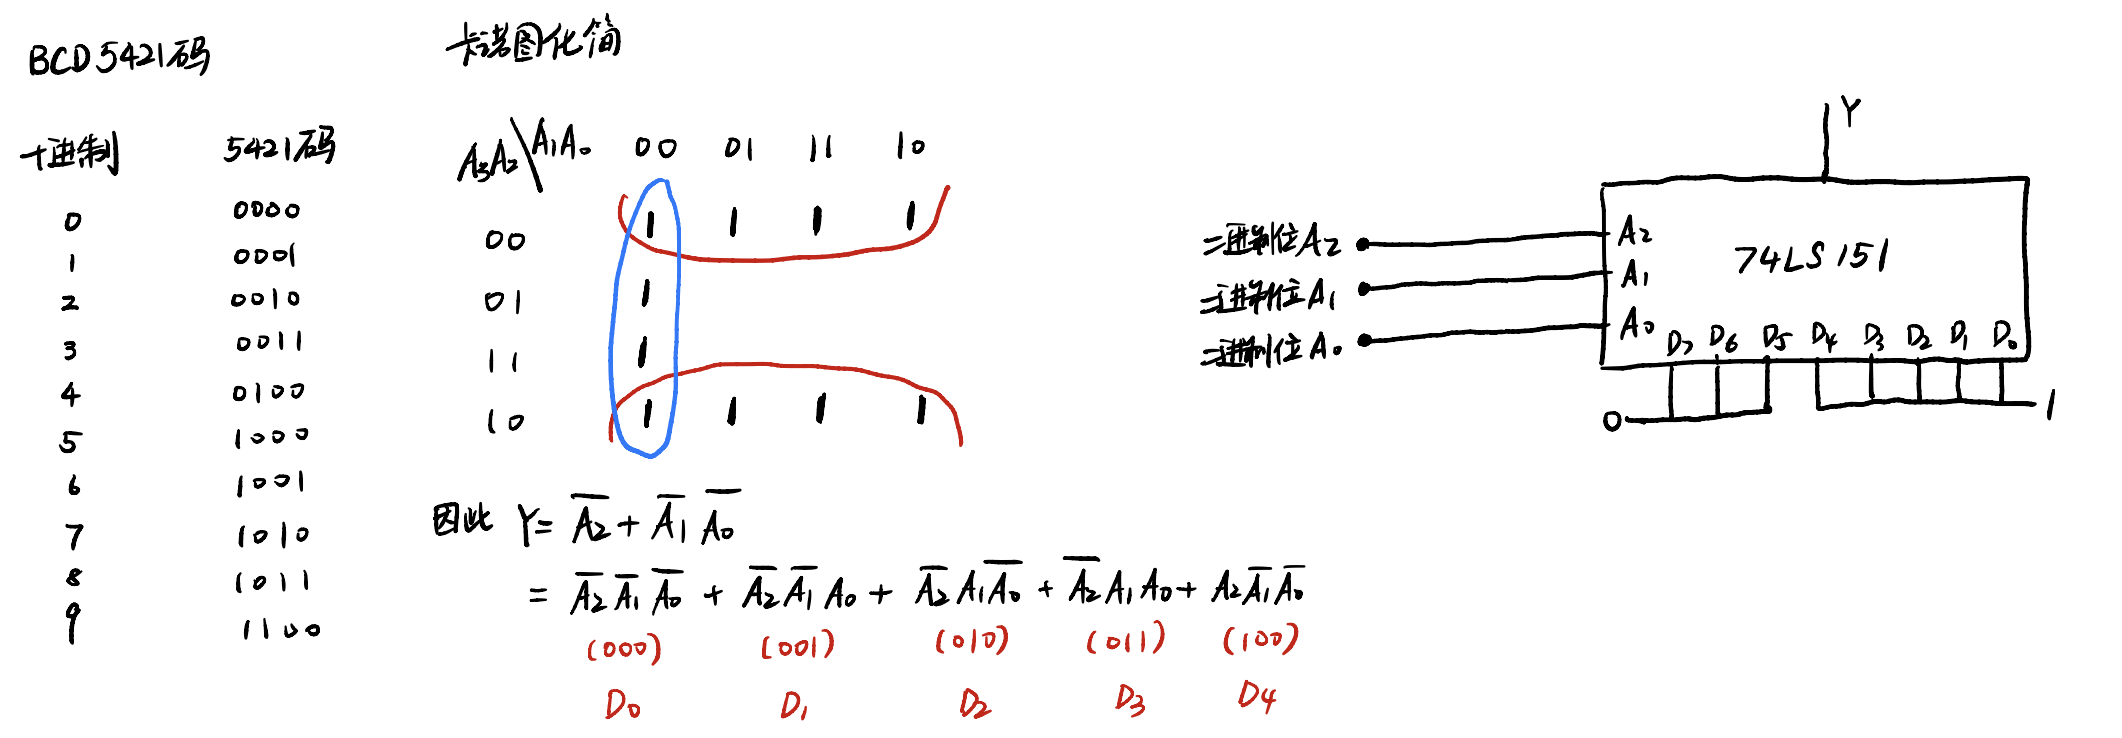 BCD 5421码
十进制 5421码
0 0000
1 0001
2 0010
3 0011
4 0100
5 1000
6 1001
7 1010
8 1011
9 1100
卡诺图化简
A₃A₂\A₁A₀ 00 01 11 10
00 1 1 1 1
01 1
11 1
10 1 1 1 1
因此 Y = A̅₂ + A̅₁ A̅₀
= A̅₂ A̅₁ A̅₀ + A̅₂ A̅₁ A₀ + A̅₂ A₁ A̅₀ + A̅₂ A₁ A₀ + A₂ A̅₁ A̅₀
(000) (001) (010) (011) (100)
D₀ D₁ D₂ D₃ D4
Y
二进制位A₂ A₂
74LS151
二进制位A₁ A₁
二进制位A₀ A₀
D₇ D₆ D₅ D₄ D₃ D₂ D₁ D₀
0 1